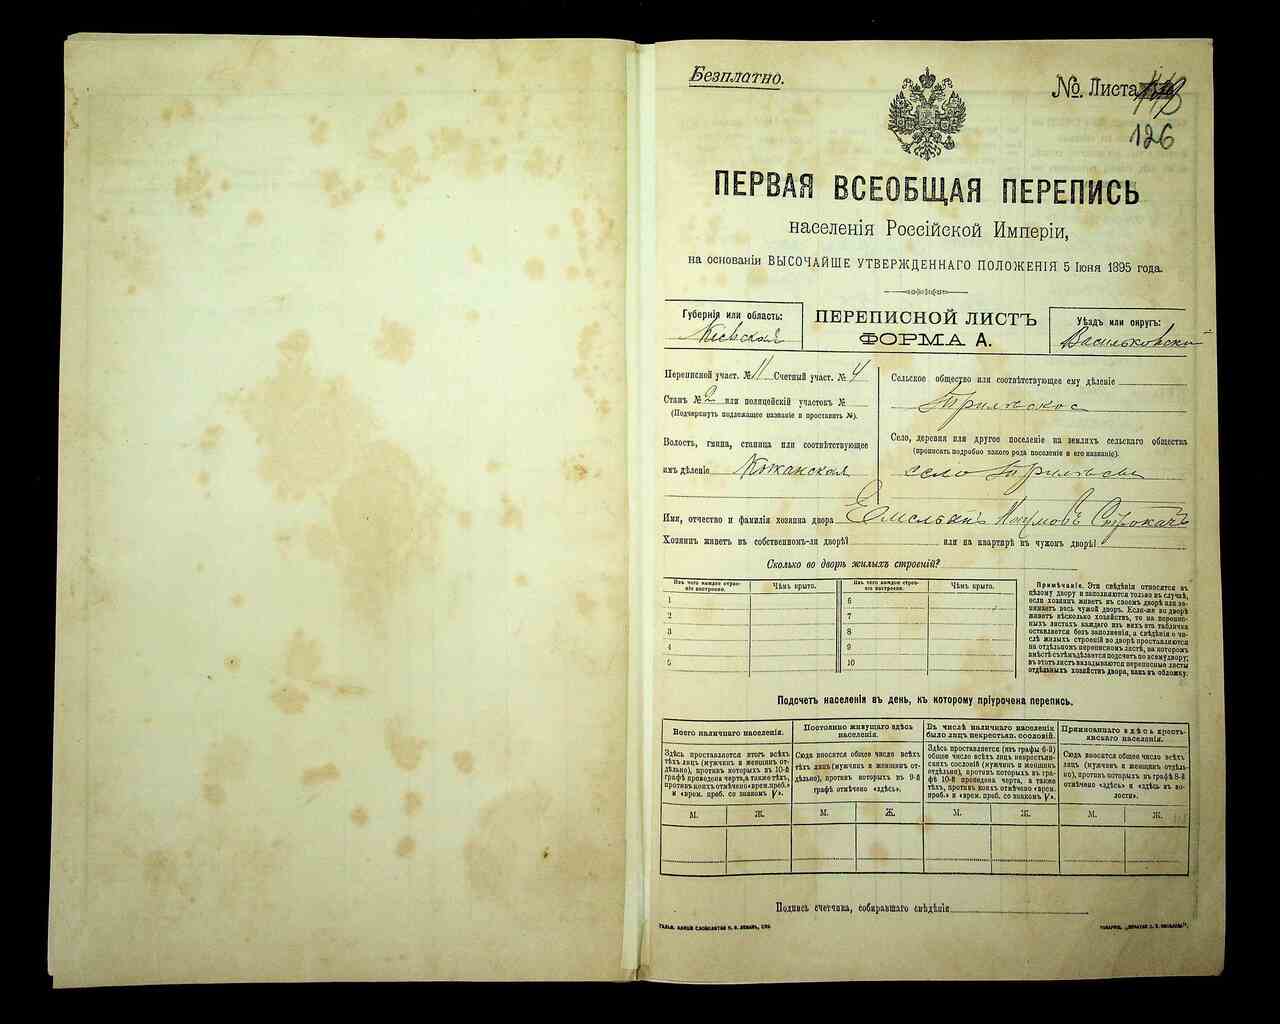 Безплатно.
№. Листа
126
ПЕРВАЯ ВСЕОБЩАЯ ПЕРЕПИСЬ
населенія Россійской Имперіи,
на основаніи ВЫСОЧАЙШЕ УТВЕРЖДЕННАГО ПОЛОЖЕНІЯ 5 Іюня 1895 года.
Губернія или область:
Кіевская
ПЕРЕПИСНОЙ ЛИСТЪ
ФОРМА А.
Уѣздъ или округъ:
Васильковскій
Переписной участ. № 11 Счетный участ. № 4
Станъ № 2 или полицейскій участокъ №
(Подчеркнуть подлежащее названіе и проставить №).
Волость, гмина, станица или соотвѣтствующее
имъ дѣленіе Кожанская
Сельское общество или соотвѣтствующее ему дѣленіе
Трилѣское
Село, деревня или другое поселеніе на земляхъ сельскаго общества
(прописать подробно какого рода поселеніе и его названіе).
село Трилѣсы
Имя, отчество и фамилія хозяина двора Емельянъ Наумовъ Строкачъ
Хозяинъ живетъ въ собственномъ-ли дворѣ? или на квартирѣ въ чужомъ дворѣ?
Сколько во дворѣ жилыхъ строеній?
Изъ чего каждое строеніе построено.
Чѣмъ крыто.
Изъ чего каждое строеніе построено.
Чѣмъ крыто.
1 6
2 7
3 8
4 9
5 10
Примѣчаніе. Эти свѣдѣнія относятся къ
цѣлому двору и заполняются только въ случаѣ,
если хозяинъ живетъ въ своемъ дворѣ или за-
нимаетъ весь чужой дворъ. Если-же во дворѣ
живетъ нѣсколько хозяйствъ, то на перепис-
ныхъ листахъ каждаго изъ нихъ эта табличка
оставляется безъ заполненія, а свѣдѣнія о чи-
слѣ жилыхъ строеній во дворѣ проставляются
на отдѣльномъ переписномъ листѣ, на которомъ
вмѣстѣ съ тѣмъ дѣлается подсчетъ по всему двору;
въ этотъ листъ вкладываются переписные листы
отдѣльныхъ хозяйствъ двора, какъ въ обложку.
Подсчетъ населенія въ день, къ которому пріурочена перепись.
Всего наличнаго населенія.
Здѣсь проставляется итогъ всѣхъ
тѣхъ лицъ (мужчинъ и женщинъ от-
дѣльно), противъ которыхъ въ 10-й
графѣ проведена черта, а также тѣхъ,
противъ коихъ отмѣчено «врем. преб.»
и «врем. преб. со знакомъ V».
Постоянно живущаго здѣсь
населенія.
Сюда вносится общее число всѣхъ
тѣхъ лицъ (мужчинъ и женщинъ от-
дѣльно), противъ которыхъ въ 9-й
графѣ отмѣчено «здѣсь».
Въ числѣ наличнаго населенія
было лицъ некрестьян. сословій.
Здѣсь проставляется (изъ графы 6-й)
общее число всѣхъ лицъ некрестьян-
скихъ сословій (мужчинъ и женщинъ
отдѣльно), противъ которыхъ въ гра-
фѣ 10-й проведена черта, а также
тѣхъ, противъ коихъ отмѣчено «врем.
преб.» и «врем. преб. со знакомъ V».
Приписаннаго здѣсь кресть-
янскаго населенія.
Сюда вносится общее число всѣхъ
лицъ (мужчинъ и женщинъ отдѣль-
но), противъ которыхъ въ графѣ 8-й
отмѣчено «здѣсь» и «здѣсь въ во-
лости».
М. Ж. М. Ж. М. Ж. М. Ж.
Подпись счетчика, собиравшаго свѣдѣнія